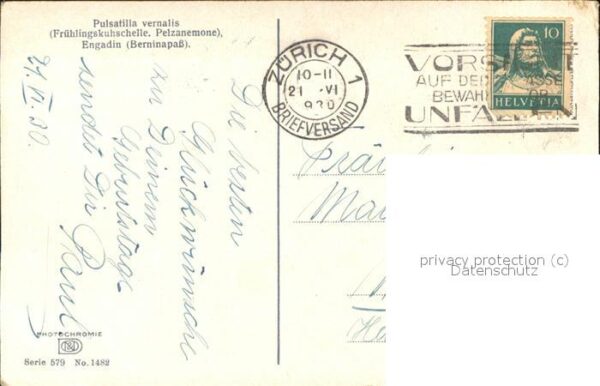 Pulsatilla vernalis
(Frühlingskuhschelle, Pelzanemone),
Engadin (Berninapaß).
21. VI. 30.
Die besten
Glückwünsche
zu Deinem
Geburtstage
sendet Dir
Paul
PHOTOCHROMIE
Serie 579 No. 1482
ZÜRICH 1
10-11
21 VI
930
BRIEFVERSAND
VORSICHT
AUF DER STRASSE
BEWAHRT VOR
UNFÄLLEN
10
HELVETIA
privacy protection (c)
Datenschutz